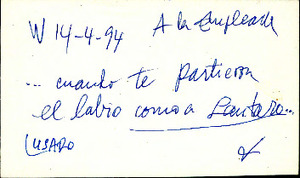 W 14-4-94 A la Empleada
... cuando te partieron
el labio como a Lautaro...
USADO